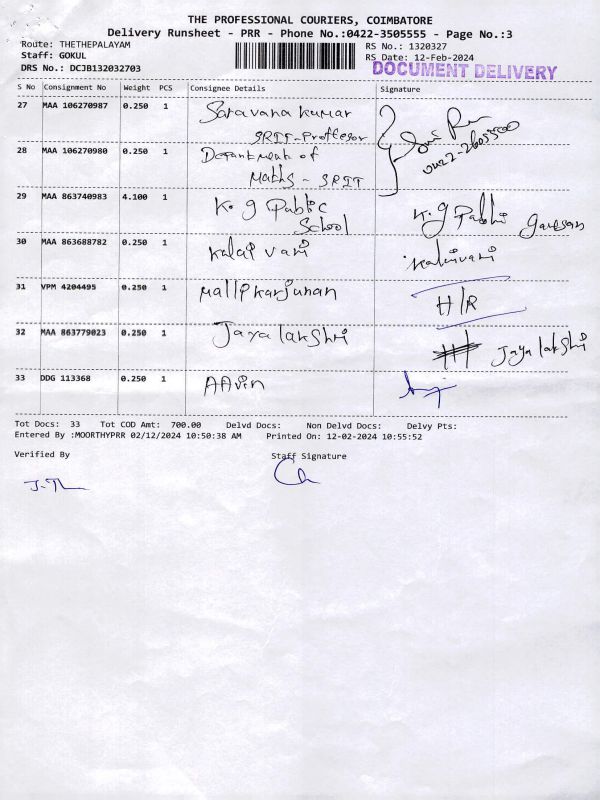 THE PROFESSIONAL COURIERS, COIMBATORE
Delivery Runsheet - PRR - Phone No.:0422-3505555 - Page No.:3
Route: THETHEPALAYAM RS No.: 1320327
Staff: GOKUL RS Date: 12-Feb-2024
DRS No.: DCJB132032703 DOCUMENT DELIVERY
S No Consignment No Weight PCS Consignee Details Signature
27 MAA 106270987 0.250 1 Saravana kumar
SRIT-Proffesor
28 MAA 106270980 0.250 1 Department of 0422-2605500
Maths - SRIT
29 MAA 863740983 4.100 1 K. g Public K. g
School
30 MAA 863688782 0.250 1 Kalai vani Kalaivani
31 VPM 4204495 0.250 1 Mallikarjunan H/R
32 MAA 863779023 0.250 1 Jaya lakshmi
Jaya lakshmi
33 DDG 113368 0.250 1 AAvin
Tot Docs: 33 Tot COD Amt: 700.00 Delvd Docs: Non Delvd Docs: Delvy Pts:
Entered By :MOORTHYPRR 02/12/2024 10:50:38 AM Printed On: 12-02-2024 10:55:52
Verified By Staff Signature